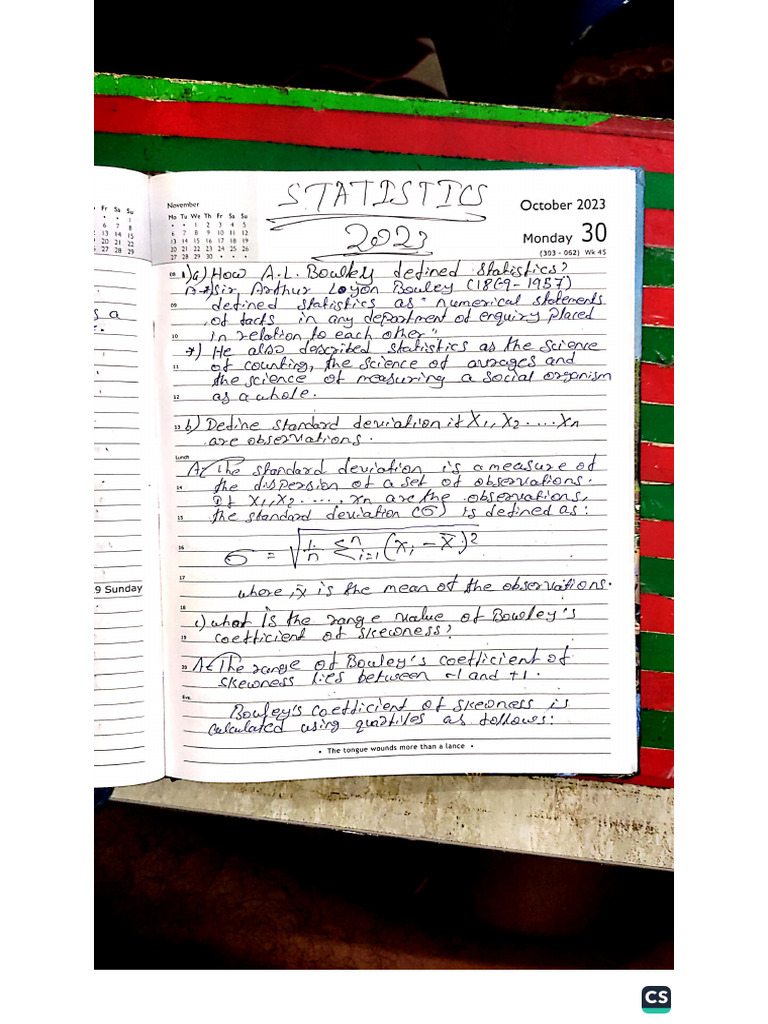 STATISTICS
2023
November
Mo Tu We Th Fr Sa Su
• • 1 2 3 4 5
6 7 8 9 10 11 12
13 14 15 16 17 18 19
20 21 22 23 24 25 26
27 28 29 30 • • •
October 2023
Monday 30
(303 - 062) Wk 45
Fr Sa Su
• • 1
6 7 8
13 14 15
20 21 22
27 28 29
s a
9 Sunday
08 1)a) How A.L. Bowlely defined statistics?
A→*) Sir, Arthur Loyon Bowley (1869-1957)
09 defined statistics as "numerical statements
of facts in any department of enquiry placed
10 in relation to each other".
*) He also described statistics as the science
11 of counting, the science of averages and
the science of measuring a social organism
12 as a whole.
13 b) Define standard deviation if X1, X2 .... Xn
are observations.
Lunch
A< The standard deviation is a measure of
14 the dispersion of a set of observations.
If x1, x2 ..... xn are the observations,
15 the standard deviation (σ) is defined as:
16 σ = √1/n Σⁿi=1 (xi - x̄)²
17
where, x̄ is the mean of the observations.
18
c) what is the range value of Bowley's
19 coefficient of skewness?
20 A< The range of Bowley's coefficient of
skewness lies between -1 and +1.
Eve.
Bowley's coefficient of skewness is
calculated using quartiles as follows:
• The tongue wounds more than a lance •
CS